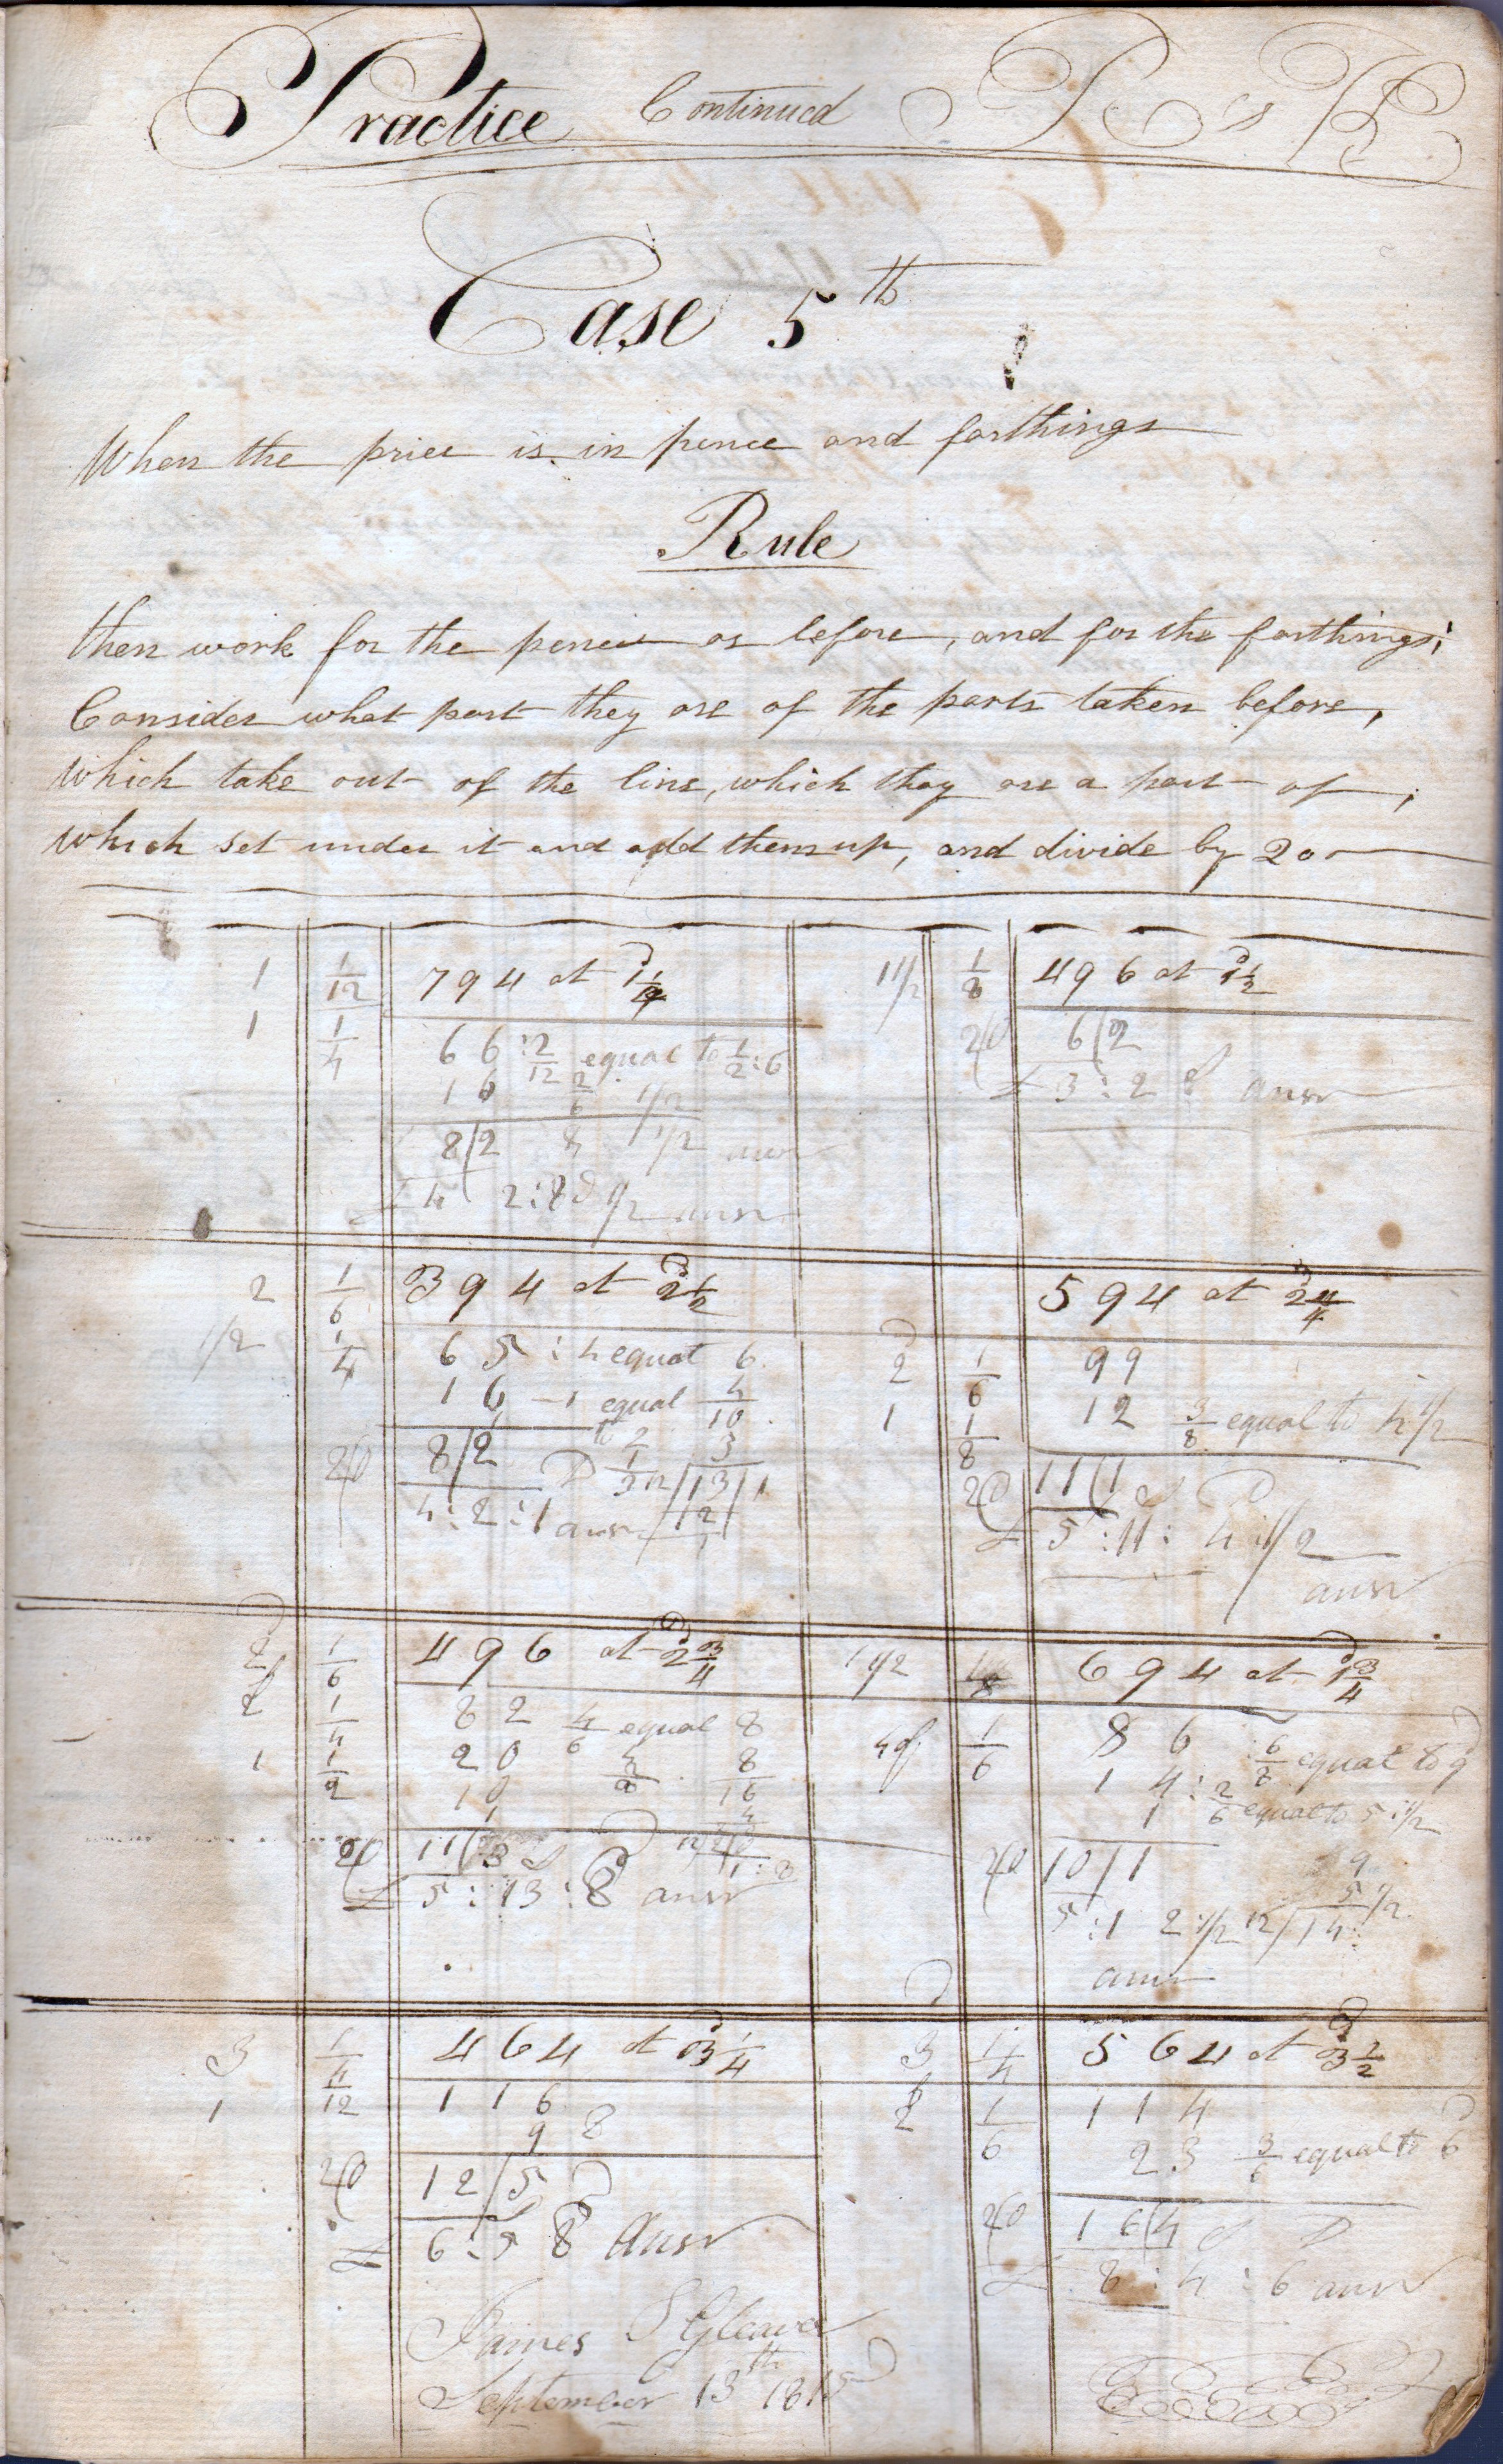 Practice Continued
Case 5th
When the price is in pence and farthings
Rule
then work for the pence as before, and for the farthings;
Consider what part they are of the parts taken before,
Which take out of the line, which they are a part of,
which set under it and add them up, and divide by 20
1 1/12 794 at 1 1/4
1 1/4 66 : 2/12 equal to 1/2 : 6
16 2/6 1/2
8/2 8 1/2
£ 4 2 : 8 d 1/2 answ
1 1/2 1/8 496 at 1 1/2
20 6/2
£ 3 : 2 S answ
2 1/6 394 at d 2 1/2
1/2 1/4 65 : 4 equal 6
16 - 1 equal 4/10
1 to
20 8/2 D
4 : 2 : 1 answ
594 at 2 1/4
2 1/6 99
1 1/8 12 3/8 equal to 4 1/2
20 11/1 S D
£ 5 : 11 : 4 1/2
answ
1/6 496 at d 2 3/4
2 1/4 82 4/6 equal 8
1 1/2 20 8
10 16
1 4
20 11/3 S D
£ 5 : 13 : 8 answ
1 1/2 1/8 694 at d 1 3/4
1/6 86 : 6/8 equal to 9
14 : 2/6 equal to 5 : 1/2
1
20 10/1 9
5 1/2
5 : 1 2 : 1/2 12/14 :
answ
3 1/4 464 at d 3 1/4
1 1/12 116
9 8
20 12/5 D
£ 6 : 5 8 Answ
3 1/4 564 at d 3 1/2
2 1/6 114
23 3/6 equal to 6
20 16/4 S D
£ 8 : 4 : 6 answ
James S Gleaver
September 13th 1815